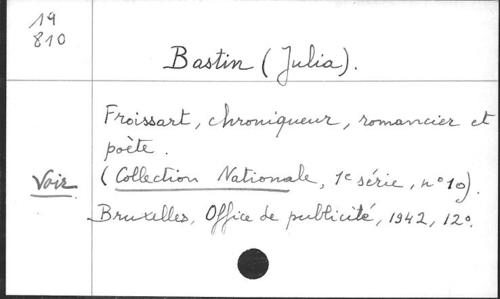 19
810
Bastin (Julia).
Froissart, chroniqueur, romancier et
poète.
Voir (Collection Nationale, 1e série, n° 10).
Bruxelles, Office de publicité, 1942, 12°.